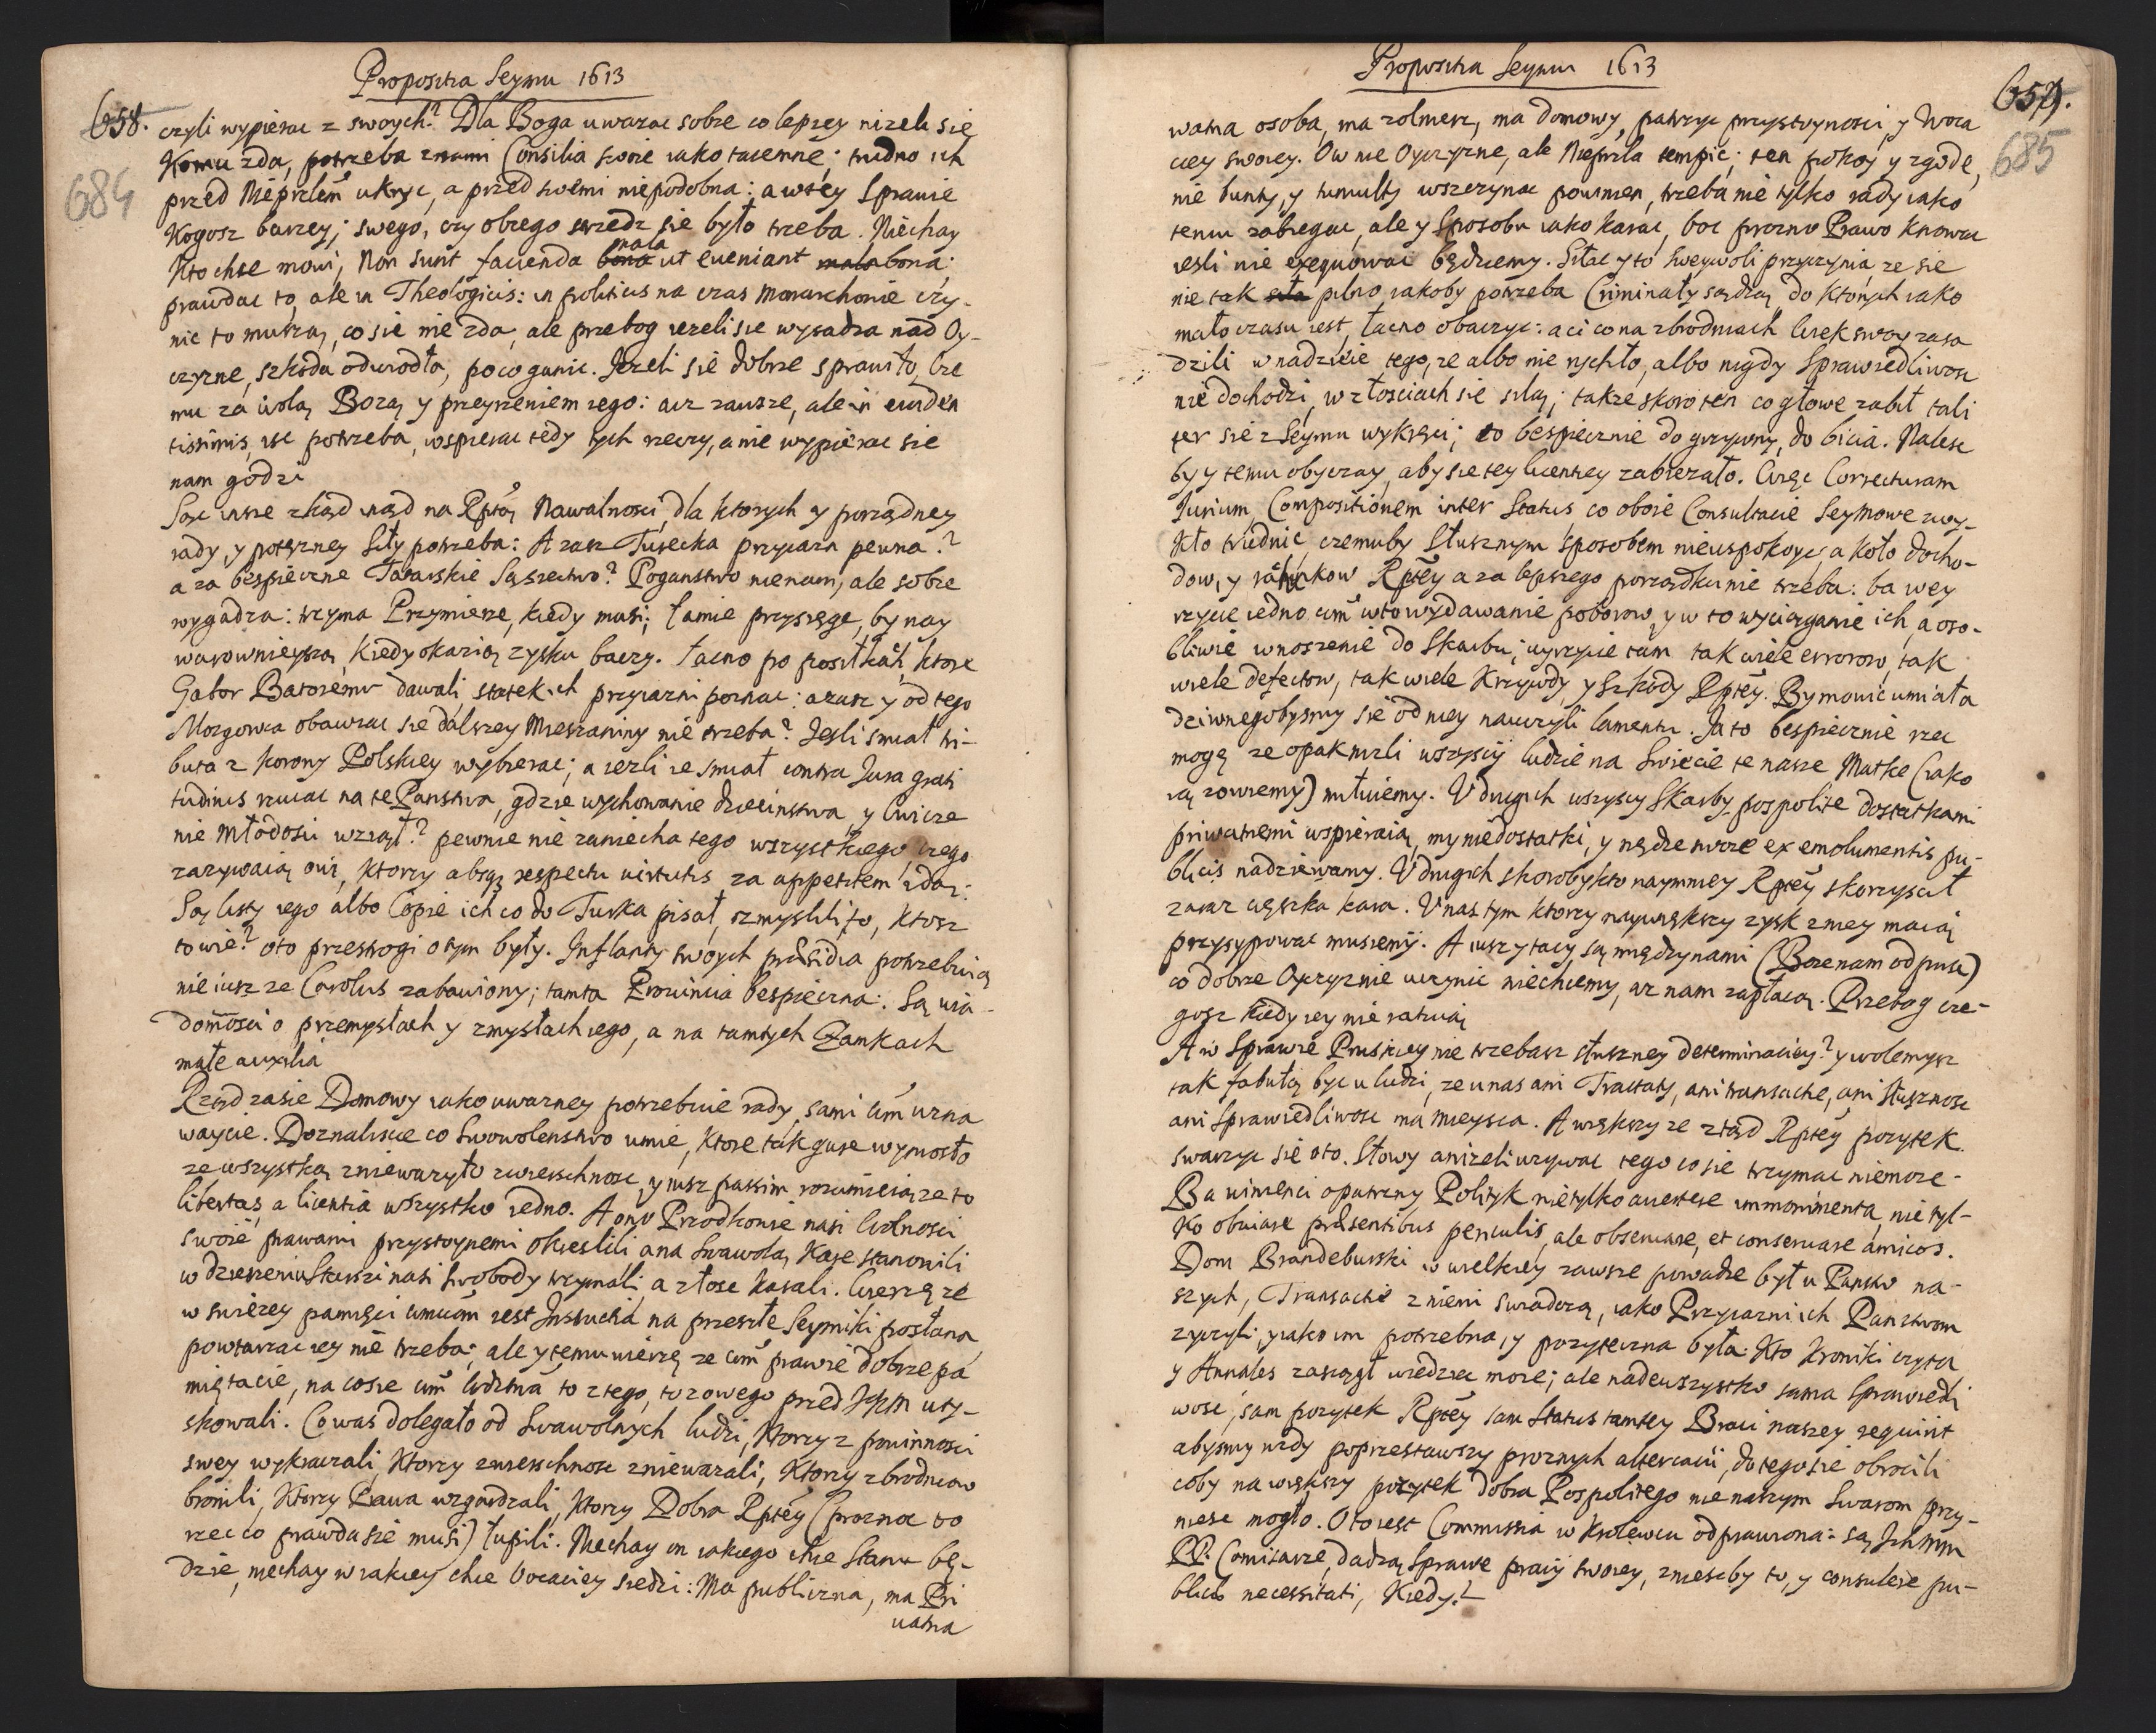 Propositia Seymu 1613
658.
684
czyli wypierac z swoych? Dla Boga uwazac sobie co lepszey nizeli się
Komu zda, potrzeba znami Consilia swoie iako taiemne; trudno ich
przed Nieprzlem ukryc, a przed swemi niepodobna: a wtey Sprawie
Kogosz barzey; swego, czy obcego strzedz się było trzeba. Niechay
Kto chce mowi, Non sunt facienda mala ut eueniant bona:
prawdac to, ale in Theologicis: in politicis na czas Monarchowie czy-
nic to muszą, co się nie zda, ale przebog iezeli sie wysadza nad Oy-
czyznę, szkoda odwodła, poco ganic. Jezeli się dobrze sprawiło, cze
mu za wolą Bozą y przeyrzeniem iego: acz zawsze, ale in euiden
tissimis, iest potrzeba, wspierac tedy tych rzeczy, a nie wypierac się
nam godzi
Sąc insze zkąd inąd na Rptą Nawalnosci, dla ktorych y porządney
rady, y potęzney Siły potrzeba: A zasz Turecka przyiazn pewna?
a za bespieczne Tatarskie Sąsiectwo? Poganstwo nie nam, ale sobie
wygadza: trzyma Przymierze, kiedy musi; łamie przysięgę, by nay
warownieyszą, kiedy okazią zysku baczy. łacno po posiłkach, ktore
Gabor Batoremu dawali, statek ich przyiazni poznac: azasz y od tego
Mozgowca obawiac się dalszey Mieszaniny nie trzeba? Jesli smiał tri-
buta z Korony Polskiey wybierac; a iezli ie smiał contra Jura grati
tudinis rzucac na te Panstwa, gdzie wychowanie dziecinstwa, y Cwicze
nie Młodosci wziął? pewnie nie zaniecha tego wszystkiego czego
zazywaią oni, ktorzy absq respectu uirtutis za appetitem idą:
Są listy iego albo Copie ich co do Turka pisał, zmyslili to, Ktosz
to wie? oto przestrogi o tym były. Inflanty swoych præsidia potrzebuią
nie iusz ze Carolus zabawiony; tamta Prowincia bespieczna: Są wia-
domosci o przemysłach y zmysłach iego, a na tamtych Zamkach
małe auxilia
Rząd zasie Domowy iako uwazney potrzebuie rady, sami WM uzna
waycie. Doznaliscie co Swowolenstwo umie, ktore tak gurę wyniosło
ze wszystką zniewazyło zwierzchnosc, y iusz passim rozumieią ze to
libertas, a licentia wszystko iedno. A ono Przodkowie nasi Wolnosci
swoie prawami przystoynemi okreslili, a na Swawolą Kaze stanowili
w dzierzeniu Starszi nasi Swobody trzymali, a złosc karali. Wierzę ze
w swiezey pamięci WMciom iest Instructia na przeszłe Seymiki posłana,
powtarzac iey nie trzeba; ale y temu wierzę ze WM prawie dobrze pa
miętacie, na cosie WM to z tego, to z owego przed JKM uty-
skowali. Co was dolegało od Swawolnych ludzi, Ktorzy z powinnosci
swey wykraczali, Ktorzy zwierzchnosc zniewazali, Ktorzy zbrodniow
bronili, Ktorzy Prawa wzgardzali, Ktorzy Dobra Rptey (prozno to
rzec co prawda się musi) łupili. Niechay on iakiego chce Stanu bę-
dzie, niechay w iakiey chce Vocatiey siedzi: Ma publiczna, ma Pri
uatna
Propositia Seymu 1613
659.
685
watna osoba, ma zolnierz, ma domowy, patrzyc przystoynosci, y Voca
ciey swoiey. Ow nie Oyczyznę, ale Nieprzla tempic; ten pokoy y zgodę,
nie bunty, y tumulty wszczynac powinien, trzeba nie tylko rady iako
temu zabiegac, ale y Sposobu iako karac, boc prozno Prawo knowac
iesli nie exequowac będziemy. Siłac y to Sweywoli przyczynia ze się
nie tak pilno iakoby potrzeba Criminały sądzą, do ktorych iako
mało czasu iest, łacno obaczyc: a ci co na zbrodniach Wiek swoy zasa
dzili w nadzieię tego, ze albo nie rychło, albo nigdy Sprawiedliwosc
nie dochodzi, w złosciach się silą; takze skoro ten co głowę zabił tali
ter się z Seymu wykręci; to bespiecznie do grzywny, do bicia. Nalesc
by y temu obyczay, aby się tey licentiey zabiezało. Więc Correcturam
Jurium, Compositionem inter Status, co oboie Consultacie Seymowe zwy-
kło trudnic, czemuby Słusznym sposobem nieuspokoyc, a koło docho-
dow, y ratunkow Rptey a za lepszego porządku nie trzeba: ba wey
rzycie iedno WM w to wydawanie poborow, y w to wyciąganie ich, a oso-
bliwie wnoszenie do Skarbu; uyrzycie tam tak wiele errorow, tak
wiele defectow, tak wiele Krzywdy, y Szkody Rptey. By mowic umiała
dziwnegobysmy się od niey nauczyli lamentu. Ja to bespiecznie rzec
mogę ze opak nizli wszyscy ludzie na Swiecie te nasze Matkę (iako
ią zowiemy) miłuiemy. V drugich wszyscy Skarby pospolite dostatkami
priwatnemi wspieraią, my niedostatki, y nędze swoie ex emolumentis pu-
blicis nadziewamy. V drugich skoroby kto naymniey Rptey skorzyscił
zaraz cięszka kara. V nas tym ktorzy naywiększy zysk z niey maią
przysypowac musiemy. A iusz y tacy są między nami (Boze nam odpusc)
co dobrze Oyczyznie uczynic niechcemy, az nam zapłacą. Przebog cze-
gosz kiedy iey nie ratuią
A w Sprawie Pruskiey nie trzebasz słuszney determinaciey? y wolemysz
tak fabułą byc u ludzi, ze u nas ani Tractaty, ani transactie, ani słusznosc
ani Sprawiedliwosc ma mieysca. A większy ze ztąd Rptey pozytek
swarzyc się oto. Słowy anizeli uzywac tego co się trzymac niemoze-
Ba winien ci opatrzny Polityk nie tylko auertere imminentia, nie tyl-
ko obuiare præsentibus periculis, ale obseruare, et conseruare amicos.
Dom Brandeburski w wielkiey zawsze powadze był u Panow na-
szych, Transactie z niemi swiadczą, iako Przyiazni ich Panstwom
zyczyli, y iako im potrzebna, y pozyteczna była: Kto Kroniki czyta
y Annales zasiągł wiedziec moze; ale nadewszystko sama Sprawiedli
wosc, sam pozytek Rptey sam Status tamtey Braci naszey requirit
abysmy nidy poprzestawszy proznych altercacii, do tego się obrocili
coby na większy pozytek dobra Pospolitego nie naszym Swarom przy-
niesc mogło. Oto iest Commissia w Krolewcu odprawiona: są Ich Mm
PP. Comisarze, dadzą Sprawę pracy swoiey, zniescby to, y consulere pu-
blicæ necessitati, Kiedy?